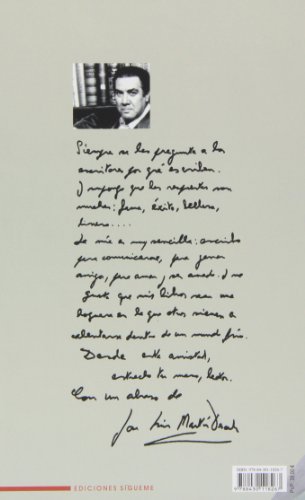 Siempre se les pregunta a los
escritores por qué escriben.
Y supongo que las respuestas son
muchas: fama, éxito, belleza,
dinero....
La mía es muy sencilla: escribo
para comunicarme, para ganar
amigos, para amar y ser amado. Y me
gusta que mis libros sean una
hoguera en la que otros vienen a
calentarse dentro de un mundo frío.
Desde esta amistad,
estrecho tu mano, lector.
Con un abrazo de
José Luis Martín Descalzo
EDICIONES SÍGUEME